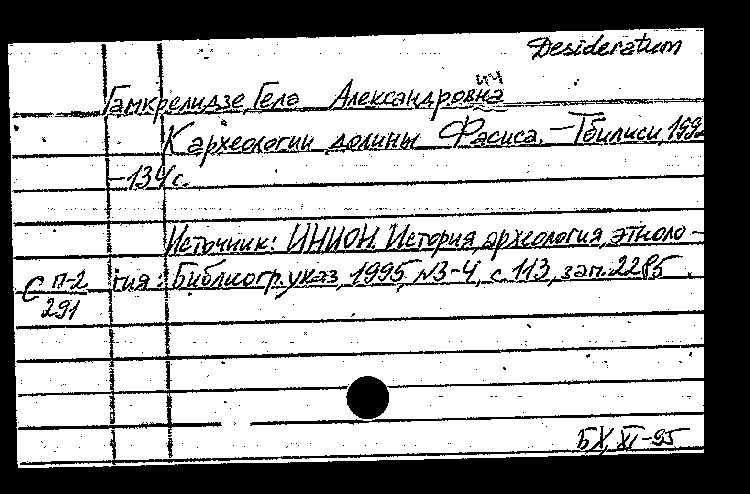 Desideratum
ич
Гамкрелидзе, Гела Александровна
К археологии долины Фасиса. – Тбилиси, 1992
– 134 с.
Источник: ИНИОН. История, археология, этноло-
гия: Библиогр. указ, 1995, №3-4, с. 113, зап. 2285.
С П-2
291
БХ, XI-95